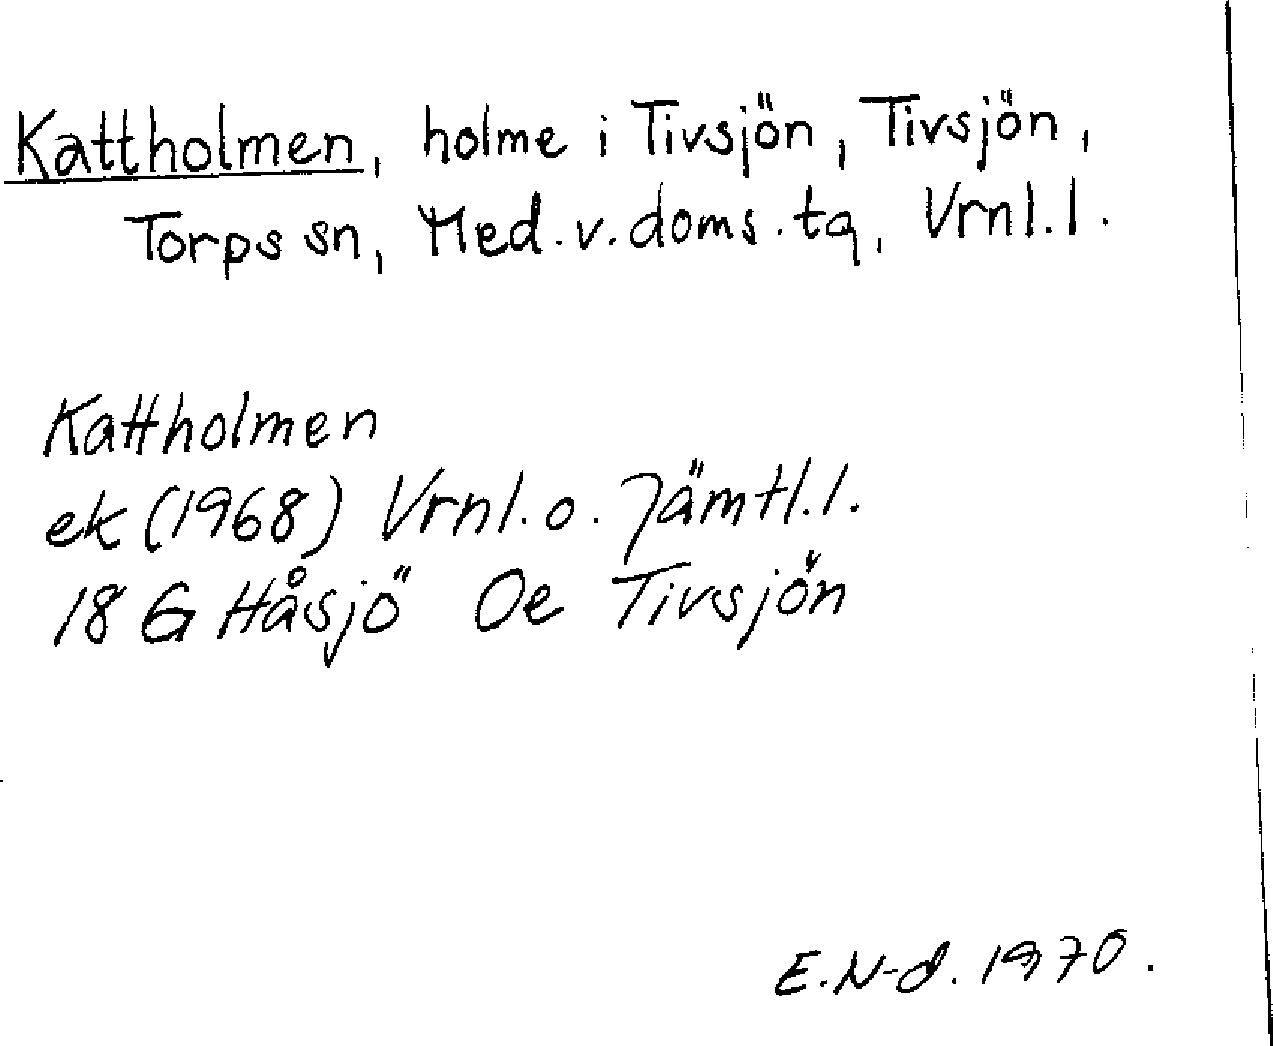 Kattholmen, holme i Tivsjön, Tivsjön,
Torps sn, Med.v.doms.tg, Vrnl.l.
Kattholmen
ek (1968) Vrnl.o. Jämtl.l.
18 G Håsjö Oe Tivsjön
E.N-d. 1970.